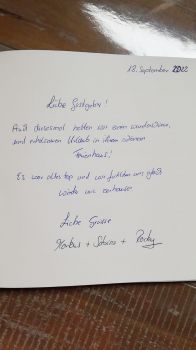 18. September 2022
Liebe Gastgeber!
Auch diesesmal hatten wir einen wunderbaren,
und erholsamen Urlaub in ihrem schönen
Ferienhaus!
Es war alles top und wir fühlten uns gleich
wieder wie zuhause.
Liebe Grüsse
Markus + Sabine + Rocky